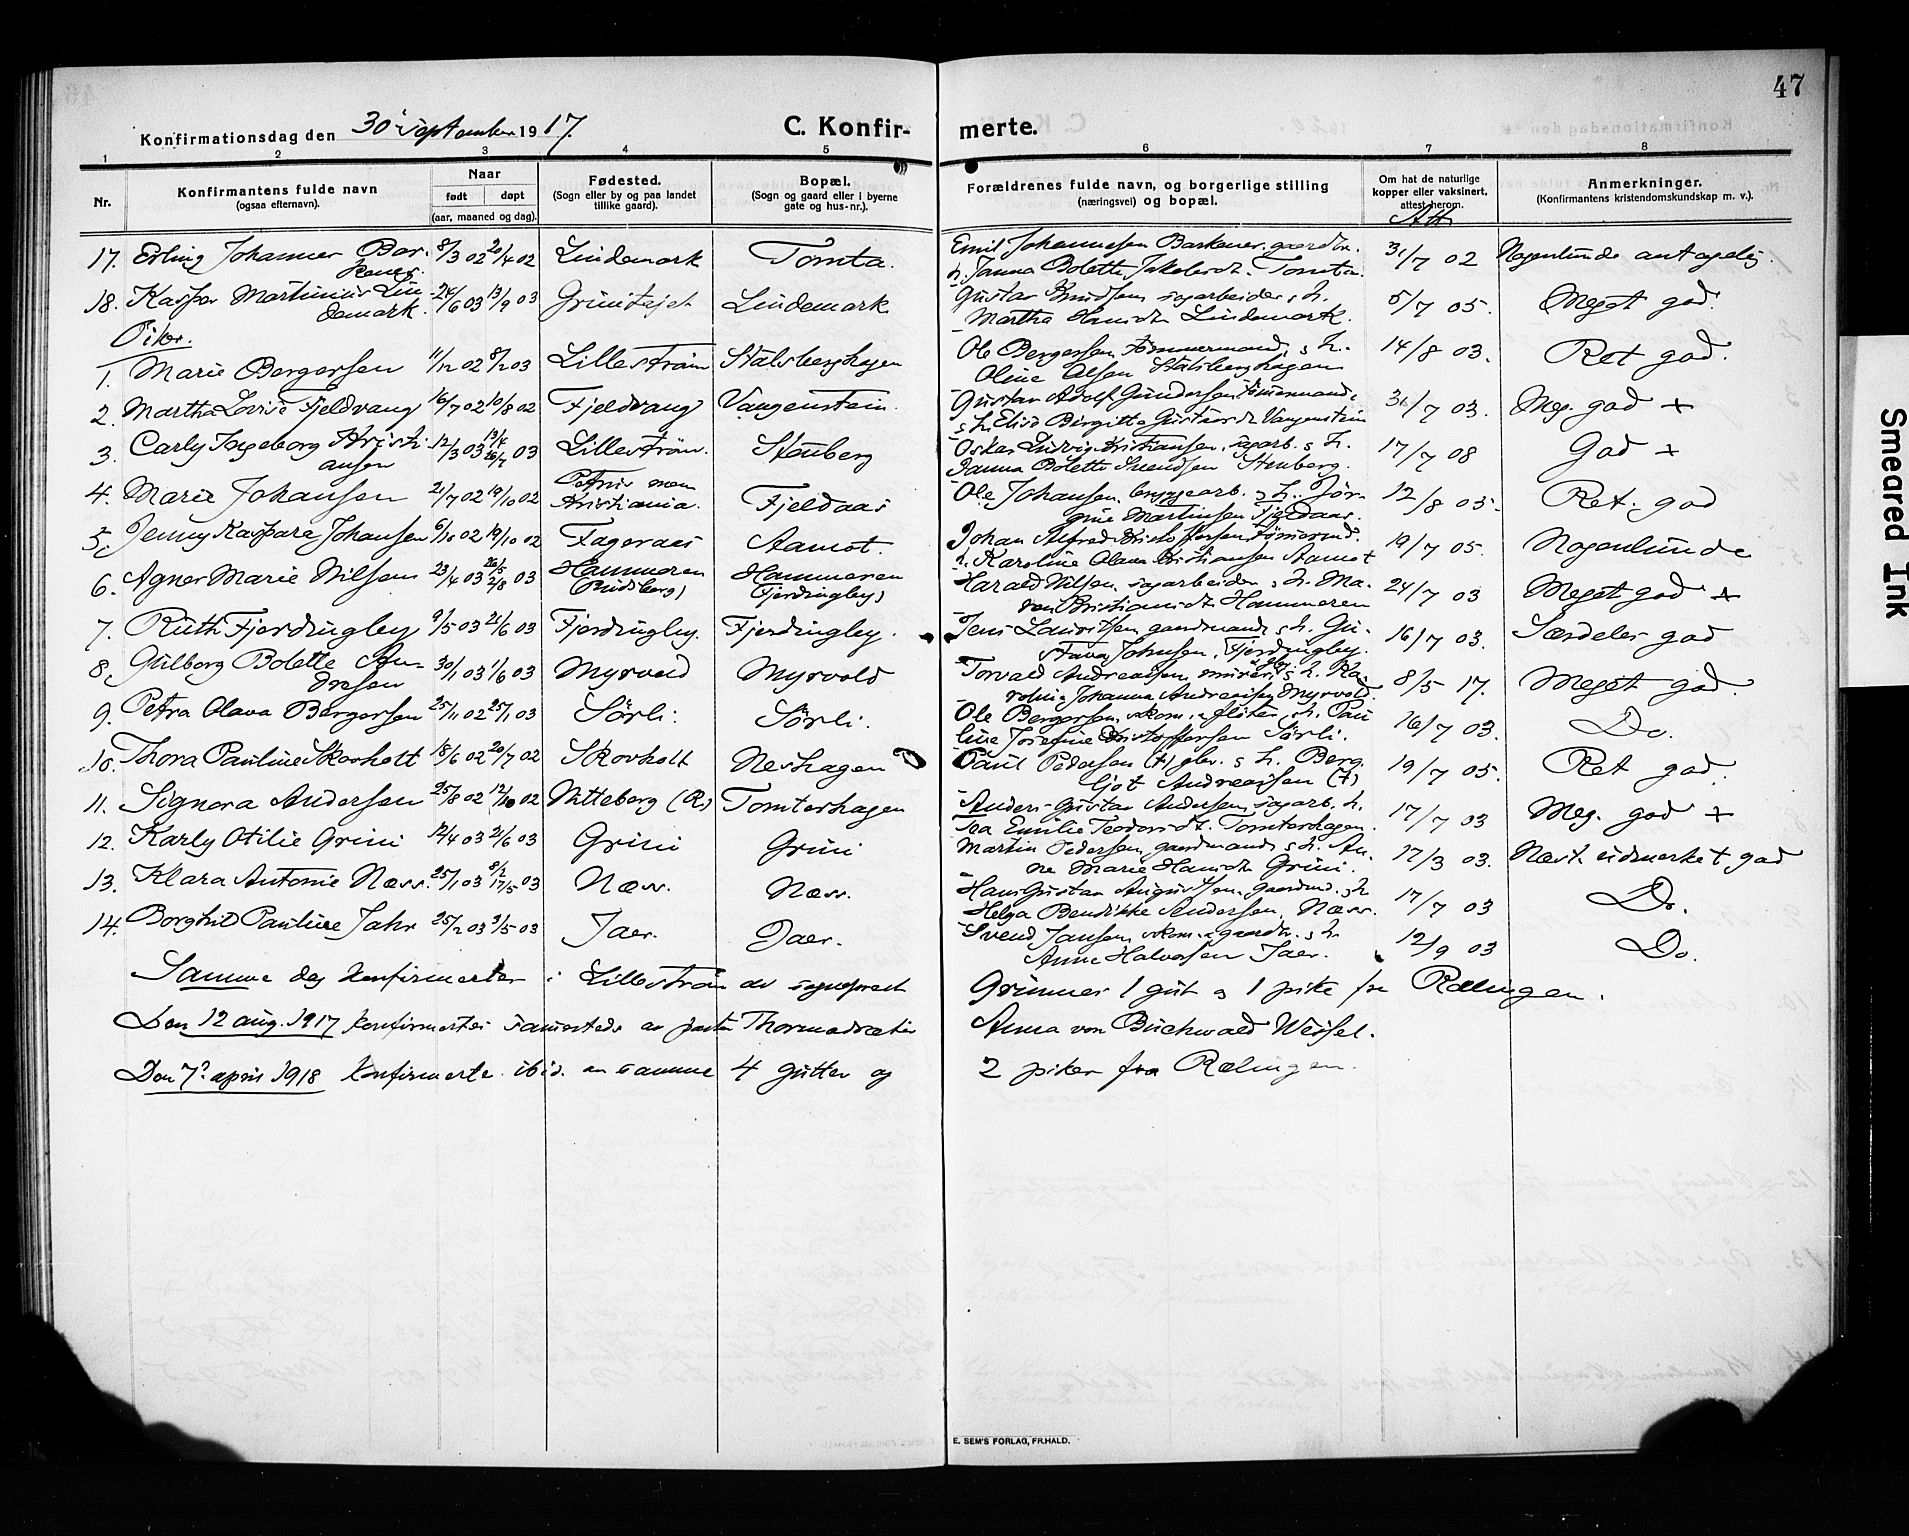 47
Konfirmationsdag den 30 september 1917 C. Konfirmerte.
1 2 3 4 5 6 7 8
Nr. Konfirmantens fulde navn (ogsaa efternavn). Naar født døpt (aar, maaned og dag). Fødested. (Sogn eller by og paa landet tillike gaard). Bopæl. (Sogn og gaard eller i byerne gate og hus-nr.). Forældrenes fulde navn, og borgerlige stilling (næringsvei) og bopæl. Om hat de naturlige kopper eller vaksinert, attest herom. Anmerkninger. (Konfirmantens kristendomskundskap m. v.).
Att
17. Erling Johannes Bar- 8/3 02 20/4 02 Lindemark Tomta. Emil Johannesen gaardbr. 31/7 02 Nogenlunde antagelig
h. Janna Bolette Tomta.
18. Kaspar Martinius Lin- 24/6 03 13/9 03 Lindemark Gustav Knudsen sagarbeider, h. 5/7 05. Meget god.
demark. Martha Hansdtr Lindemark.
Piker.
1. Marie Bergersen 11/12 02 8/2 03 Lillestrøm Stalsberghagen Ole Bergersen, tømmermand, s. h. 14/8 03. Ret god.
Oline Olsen Stalsberghagen
2. Martha Lovise Fjeldvang 16/7 02 10/8 02 Fjeldvang Vangenstein. Gustav Adolf Gundersen tømmermand, 31/7 03. Meg. god +
s. h. Elise Birgitte Gustavsdtr Vangenstein
3. Carly Ingeborg Kristi- 12/3 03 13/4 26/7 03 Lillestrøm. Stenberg Oskar Ludvig Kristiansen, sagarb. s. h. 17/7 08 God +
ansen Janna Bolette Svendsen Stenberg.
4. Marie Johansen 21/7 02 19/10 02 Petrus men Kristiania. Fjeldaas Ole Johansen, bryggearb. s. h. Jør- 12/8 03. Ret. god
gine Martinsen Fjeldaas.
5. Jenny Kaspara Johansen 6/10 02 19/10 02 Fageraas Aamot. Johan Alfred Kristoffersen 19/7 05. Nogenlunde
h. Karoline Olava Kristiansen Aamot
6. Agnes Marie Nilsen 23/4 03 26/5 2/8 03 Hammeren Hammeren Fjerdingby) Harald Nilsen, sagarbeider, s. h. Ma- 24/7 03 Meget god +
Kristiansdtr Hammeren
7. Ruth Fjerdingby 9/5 03 21/6 03 Fjerdingby. Fjerdingby. Jens Lauritsen, gaardmand, s. h. Gu- 16/7 03. Særdeles god
stava Johnsen, Fjerdingby.
8. Gulborg Bolette An- 30/1 03 1/6 03 Myrvold Myrvold Torvald Andreassen, murer, s. h. Ka- 8/5 17. Meget god.
dresen roline Johanna Andreassen Myrvold.
9. Petra Olava Bergersen 25/11 02 25/1 03 Sørli. Sørli. Ole Bergersen, skom. & fløter, s. h. Pau- 16/7 03. Do.
line Josefine Kristoffersen Sørli.
10. Thora Pauline Skovholt 18/6 02 20/7 02 Skovholt Neshagen Paul Pedersen (†) s. h. Berg. 19/7 05. Ret god.
ljot Andreassen (†)
11. Signora Andersen 25/8 02 12/10 02 Nitteberg (R.) Tomterhagen Anders Gustav Andersen, sagarb. h. 17/7 03 Meg. god +
Emilie Teodorsdt. Tomterhagen.
12. Karly Otilie Grini 12/4 03 21/6 03 Grini Grini Martin Pedersen, gaardmand, s. h. An- 17/3 03. Næst. udmerket god
ne Marie Hansdtr Grini.
13. Klara Antonie Næss. 25/1 03 8/2 17/5 03 Næss. Næss. Hans Gustav Augustsen, gaardmd. s. h. 17/7 03 Do.
Helga Bendikke Andersen, Næss.
14. Borghild Pauline Jahr 25/2 03 3/5 03 Jaer. Jaer. Svend Jansen, skom. & gaardbr. s. h. 12/9 03 Do.
Anne Halvorsen Jaer.
Samme dag konfirmerter i Lillestrøm av sogneprest Grünner 1 gut og 1 pike fra Rælingen.
Den 12 aug. 1917 konfirmertes sammesteds av pastor Thormodsæter Anna von Buchwald Wessel.
Den 7de april 1918 konfirmerte ibid. samme 4 gutter og 2 piker fra Rælingen.
E. SEM'S FORLAG, FR.HALD.
Smeared Ink